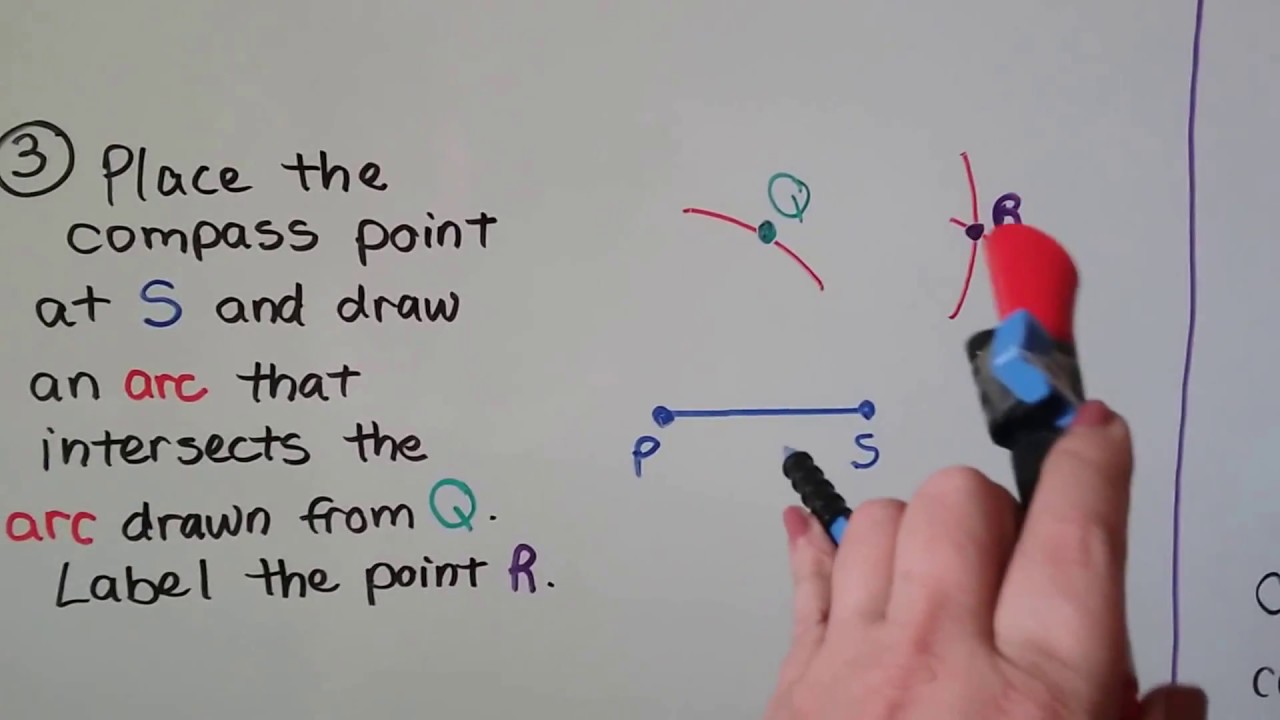 3 Place the
compass point
at S and draw
an arc that
intersects the
arc drawn from Q.
Label the point R.
Q
R
P
S